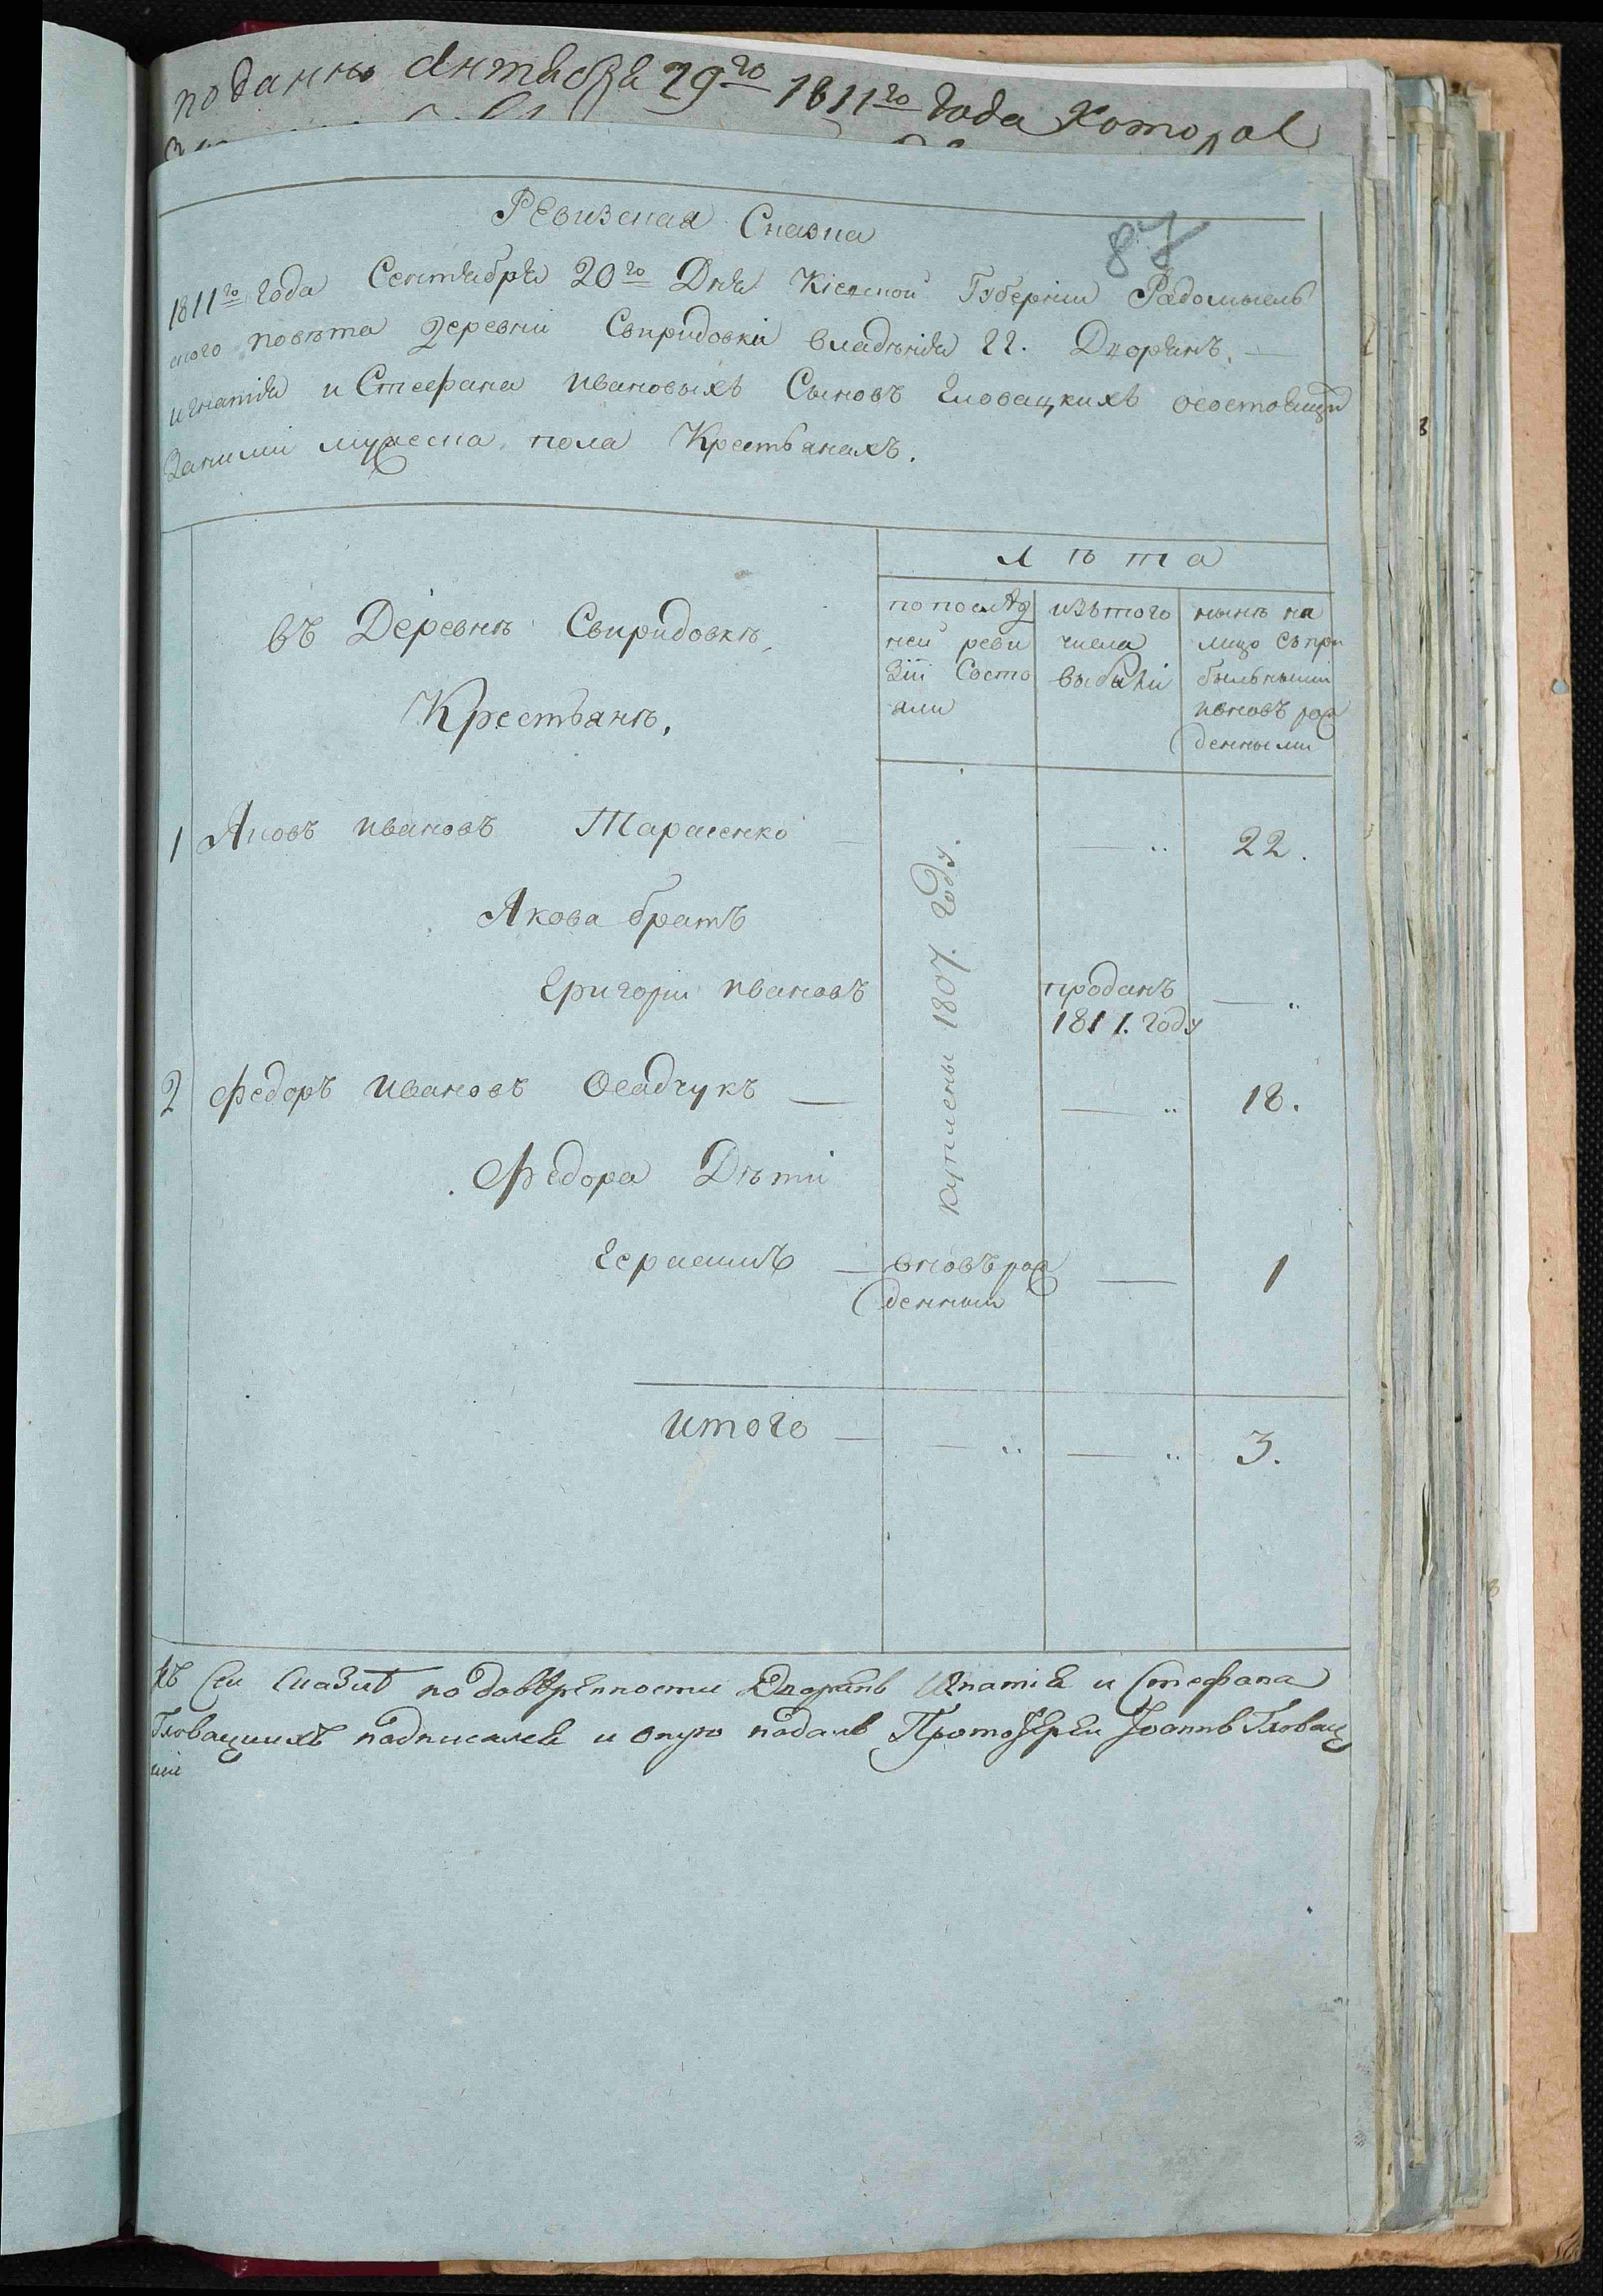 поданно Октября 29го 1811го года которае
Ревизская Сказка
87
1811го года Сентября 20го Дня Кіевской Губерніи Радомысль
ского повѣта Деревни Свиридовки владѣнія гг. Дворянъ.
игнатія и Стефана ивановыхъ Сыновъ Гловацкихъ осостоящи
Заними мужеска пола Крестьянахъ.
Лѣта
въ Деревнѣ Свиридовкѣ
Крестьянъ.
по послѣд
ней реви
зіи Состо
яли
изътого
числа
выбыли
нынѣ на
лицо съпри
быльными
ивновъ рож
денными
1 Яковъ ивановъ Тарасенко — — 22.
Якова братъ
Григори ивановъ
проданъ
1811. году
—
2 Федоръ ивановъ Осадчукъ — — 18.
куплены 1807. году.
Федора Дѣти
Герасимъ — вновърож
денный
— 1
итого — — — 3.
къ Сей Сказкѣ подовѣренности Дворянъ Игнатія и Стефана
Гловацкихъ подписался и оную подалъ ПротоІерей Іоаннъ Гловац
кій